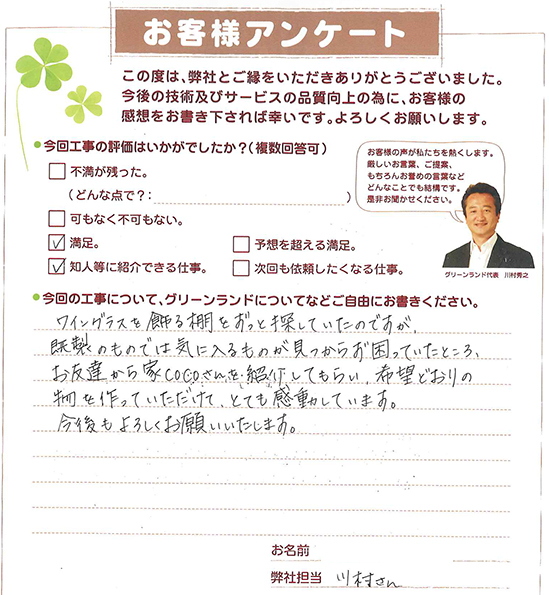 お客様アンケート
この度は、弊社とご縁をいただきありがとうございました。
今後の技術及びサービスの品質向上の為に、お客様の
感想をお書き下されば幸いです。よろしくお願いします。
今回工事の評価はいかがでしたか?(複数回答可)
不満が残った。
(どんな点で?: )
可もなく不可もない。
満足。
予想を超える満足。
知人等に紹介できる仕事。
次回も依頼したくなる仕事。
お客様の声が私たちを熱くします。
厳しいお言葉、ご提案、
もちろんお誉めの言葉など
どんなことでも結構です。
是非お聞かせください。
グリーンランド代表 川村秀之
今回の工事について、グリーンランドについてなどご自由にお書きください。
ワイングラスを飾る棚をずっと探していたのですが、
既製のものでは気に入るものが見つからず困っていたところ、
お友達から家COCOさんを紹介してもらい、希望どおりの
物を作っていただけて、とても感動しています。
今後もよろしくお願いいたします。
お名前
弊社担当 川村さん